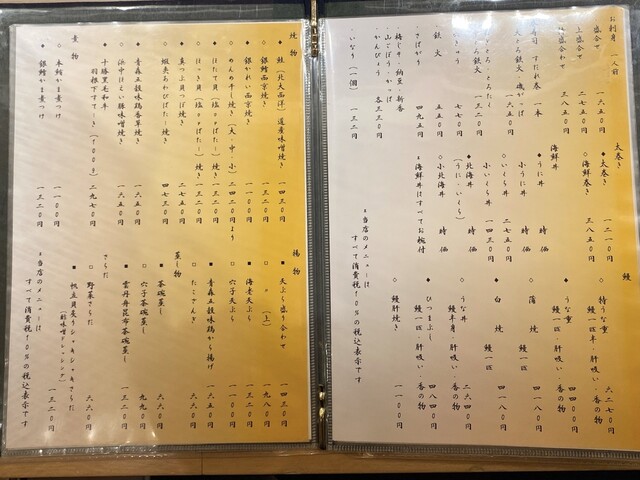 お刺身 一人前
盛合せ 一六五〇円
上盛合せ 二七五〇円
盛合わせ 三八五〇円
すだれ巻 一本
鉄火
・さばがり 四九五円
・梅じそ・納豆・新香
・山ごぼう・かっぱ
・かんぴょう 各三三〇円
・いなり(一個) 一三二円
太巻き
◆太巻き 一二一〇円
◇海鮮巻き 三八五〇円
海鮮丼
◆うに丼 時価
小うに丼 時価
◇いくら丼 二七五〇円
小いくら丼 一四三〇円
◆北海丼 時価
(うに・いくら)
◇小北海丼 時価
◆海鮮丼はすべてお椀付
※当店のメニューは
すべて消費税10%の税込表示です
鰻
◇特うな重 六二七〇円
鰻一匹半・肝吸い・香の物
◆うな重 四四〇〇円
鰻一匹・肝吸い・香の物
◇蒲焼 鰻一匹 四一八〇円
◆白焼 鰻一匹 四一八〇円
◇うな丼 二六四〇円
鰻半身・肝吸い・香の物
◆ひつまぶし 四八四〇円
鰻一匹・肝吸い・香の物
◇鰻肝焼き 一一〇〇円
焼物
◆鮭(北大西洋)道産味噌焼き 一四三〇円
◇銀鱈西京焼き 一三二〇円
◆銀かれい西京焼き 一一〇〇円
◇めんめ干し焼き(大・中・小) 二四二〇円より
◆ほたて貝焼き(塩orばたー)焼き 一三二〇円
◇ほっき貝(塩orばたー)焼き 一三二〇円
◆真つぶ貝つぼ焼き 二七五〇円
◇蝦夷あわびばたー焼き 四七三〇円
◆青森五穀味鶏香草焼き 一六五〇円
◇浜中ほえい豚味噌焼き 一六五〇円
◆十勝黒毛和牛
羽根下すてーき(100g) 二九七〇円
煮物
◇本鮪かま煮つけ 一一〇〇円
◆銀鱈かま煮つけ 一三二〇円
揚物
■天ぷら盛り合わせ 一四三〇円
□ 〃 (上) 一九八〇円
■海老天ぷら 一三二〇円
□穴子天ぷら 一一〇〇円
■青森五穀味鶏から揚げ 一六五〇円
□たこざんぎ 六六〇円
蒸し物
■茶碗蒸し 六六〇円
□穴子茶碗蒸し 九九〇円
■雲丹舟昆布茶碗蒸し 一三二〇円
さらだ
□野菜さらだ 六六〇円
■帆立貝炙りシャキシャキさらだ
(酢味噌ドレッシング) 一三二〇円
※当店のメニューは
すべて消費税10%の税込表示です